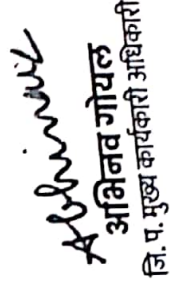 Abhinav
अभिनव गोयल
जि. प. मुख्य कार्यकारी अधिकारी